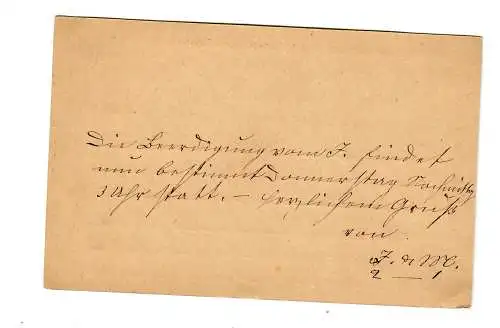 Die Beerdigung vom J. findet
nun bestimmt Donnerstag Nachmittg
3 Uhr statt. – Herzlichem Gruß
von
J. & M.